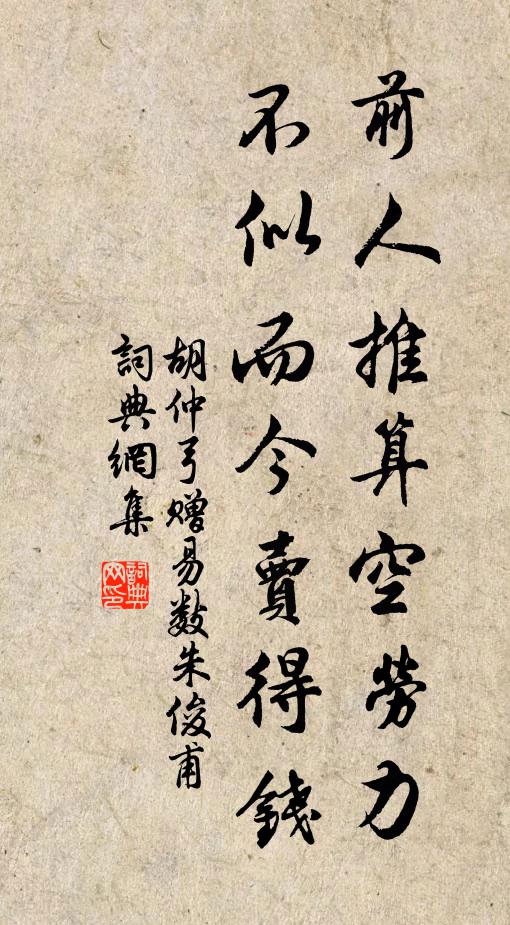 前人推算空勞力
不似而今賣得錢
胡仲弓贈易數朱俊甫
詞典網集
詞典網印